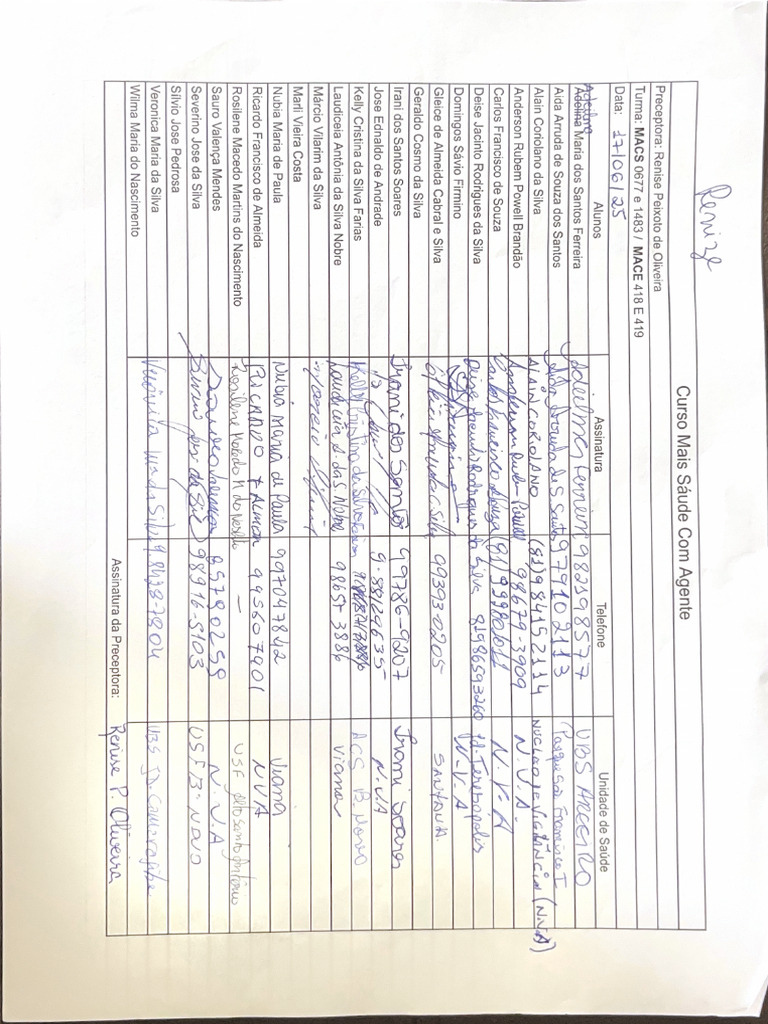 Renize
Curso Mais Sáude Com Agente
Preceptora: Renise Peixoto de Oliveira
Turma: MACS 0677 e 1483 / MACE 418 E 419
Data: 17/06/25
Alunos Assinatura Telefone Unidade de Saúde
Maria dos Santos Ferreira Ferreira 982598577 UBS
Aida Arruda de Souza dos Santos Aida Arruda de S Santos 979102113 Francisco I
Alain Coriolano da Silva ALAIN CORIOLANO (81) 984152114 NÚCLEO DE VIGILÂNCIA (N.V.A)
Anderson Rubem Powell Brandão 98679-3909 N.V.A.
Carlos Francisco de Souza Carlos Francisco de Souza (81) N.V.A
Deise Jacinto Rodrigues da Silva Deise Jacinto Rodrigues da Silva 81986593260 Jd. Teresópolis
Domingos Sávio Firmino N.V.A
Gleice de Almeida Cabral e Silva 99393-0205 SANTANA.
Geraldo Cosmo da Silva
Irani dos Santos Soares Irani dos Santos 99786-9207 Irani Soares
Jose Ednaldo de Andrade 9.88129635 N.V.A
Kelly Cristina da Silva Farias Kelly Cristina da Silva Farias ACS B. Novo
Laudiceia Antônia da Silva Nobre Laudiceia A. da S Nobre 98657 3886 Viana
Márcio Vilarim da Silva
Marli Vieira Costa
Nubia Maria de Paula Nubia Maria de Paula 997047842 Viana
Ricardo Francisco de Almeida RICARDO F ALMEIDA 995607901 NVA
Rosilene Macedo Martins do Nascimento Rosilene Macedo M do — USF Alto Santo Antônio
Sauro Valença Mendes 85780259 N.V.A
Severino Jose da Silva Severino Jose da Silva 98916-5103 USF B. NOVO
Silvio Jose Pedrosa
Veronica Maria da Silva Veronica M da Silva 984387804 UBS JD. Camaragibe
Wilma Maria do Nascimento
Assinatura da Preceptora: Renise P. Oliveira